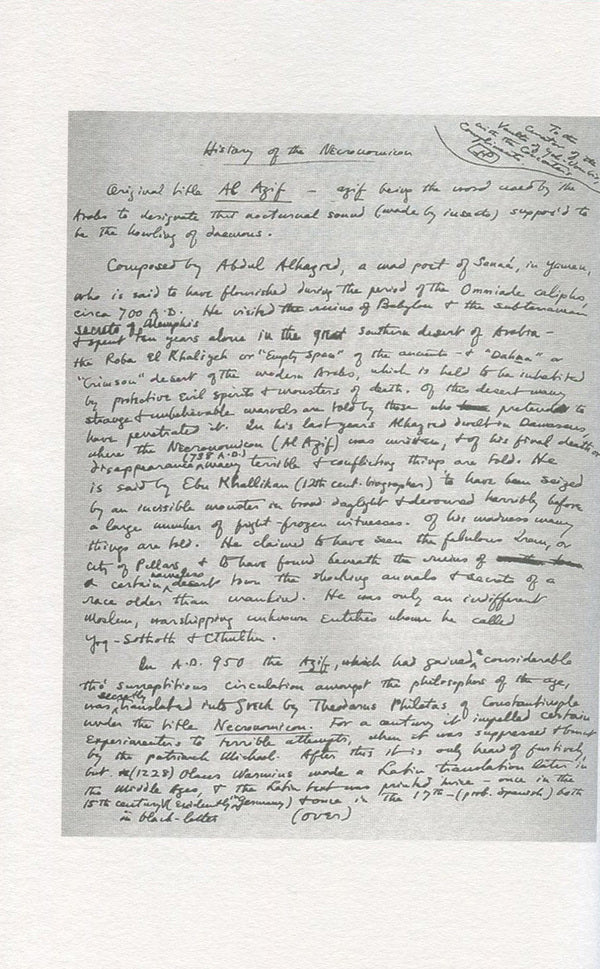 To the
Curator of the
Vaults of Yoh-Vombis,
with the Concoctor's
Compliments
History of the Necronomicon
Original title Al Azif — azif being the word used by the
Arabs to designate that nocturnal sound (made by insects) suppos'd to
be the howling of daemons.
Composed by Abdul Alhazred, a mad poet of Sanaá, in Yemen,
who is said to have flourished during the period of the Ommiade caliphs,
circa 700 A.D. He visited the ruins of Babylon & the subterranean
secrets of Memphis
& spent ten years alone in the great southern desert of Arabia —
the Roba El Khaliyeh or "Empty Space" of the ancients — & "Dahna" or
"Crimson" desert of the modern Arabs, which is held to be inhabited
by protective evil spirits & monsters of death. Of this desert many
strange & unbelievable marvels are told by those who pretend to
have penetrated it. In his last years Alhazred dwelt in Damascus,
where the Necronomicon (Al Azif) was written, & of his final death or
disappearance (738 A.D.) many terrible & conflicting things are told. He
is said by Ebn Khallikan (12th cent. biographer) to have been seized
by an invisible monster in broad daylight & devoured horribly before
a large number of fright-frozen witnesses. Of his madness many
things are told. He claimed to have seen the fabulous Irem, or
City of Pillars, & to have found beneath the ruins of
a certain nameless desert town the shocking annals & secrets of a
race older than mankind. He was only an indifferent
Moslem, worshipping unknown Entities whom he called
Yog-Sothoth & Cthulhu.
In A.D. 950 the Azif, which had gained a considerable
tho' surreptitious circulation amongst the philosophers of the age,
was secretly translated into Greek by Theodorus Philetas of Constantinople
under the title Necronomicon. For a century it impelled certain
experimenters to terrible attempts, when it was suppressed & burnt
by the patriarch Michael. After this it is only heard of furtively,
but (1228) Olaus Wormius made a Latin translation later in
the Middle Ages, & the Latin text was printed twice — once in the
15th century (evidently in Germany) & once in the 17th — (prob. Spanish) both
in black-letter
(over)